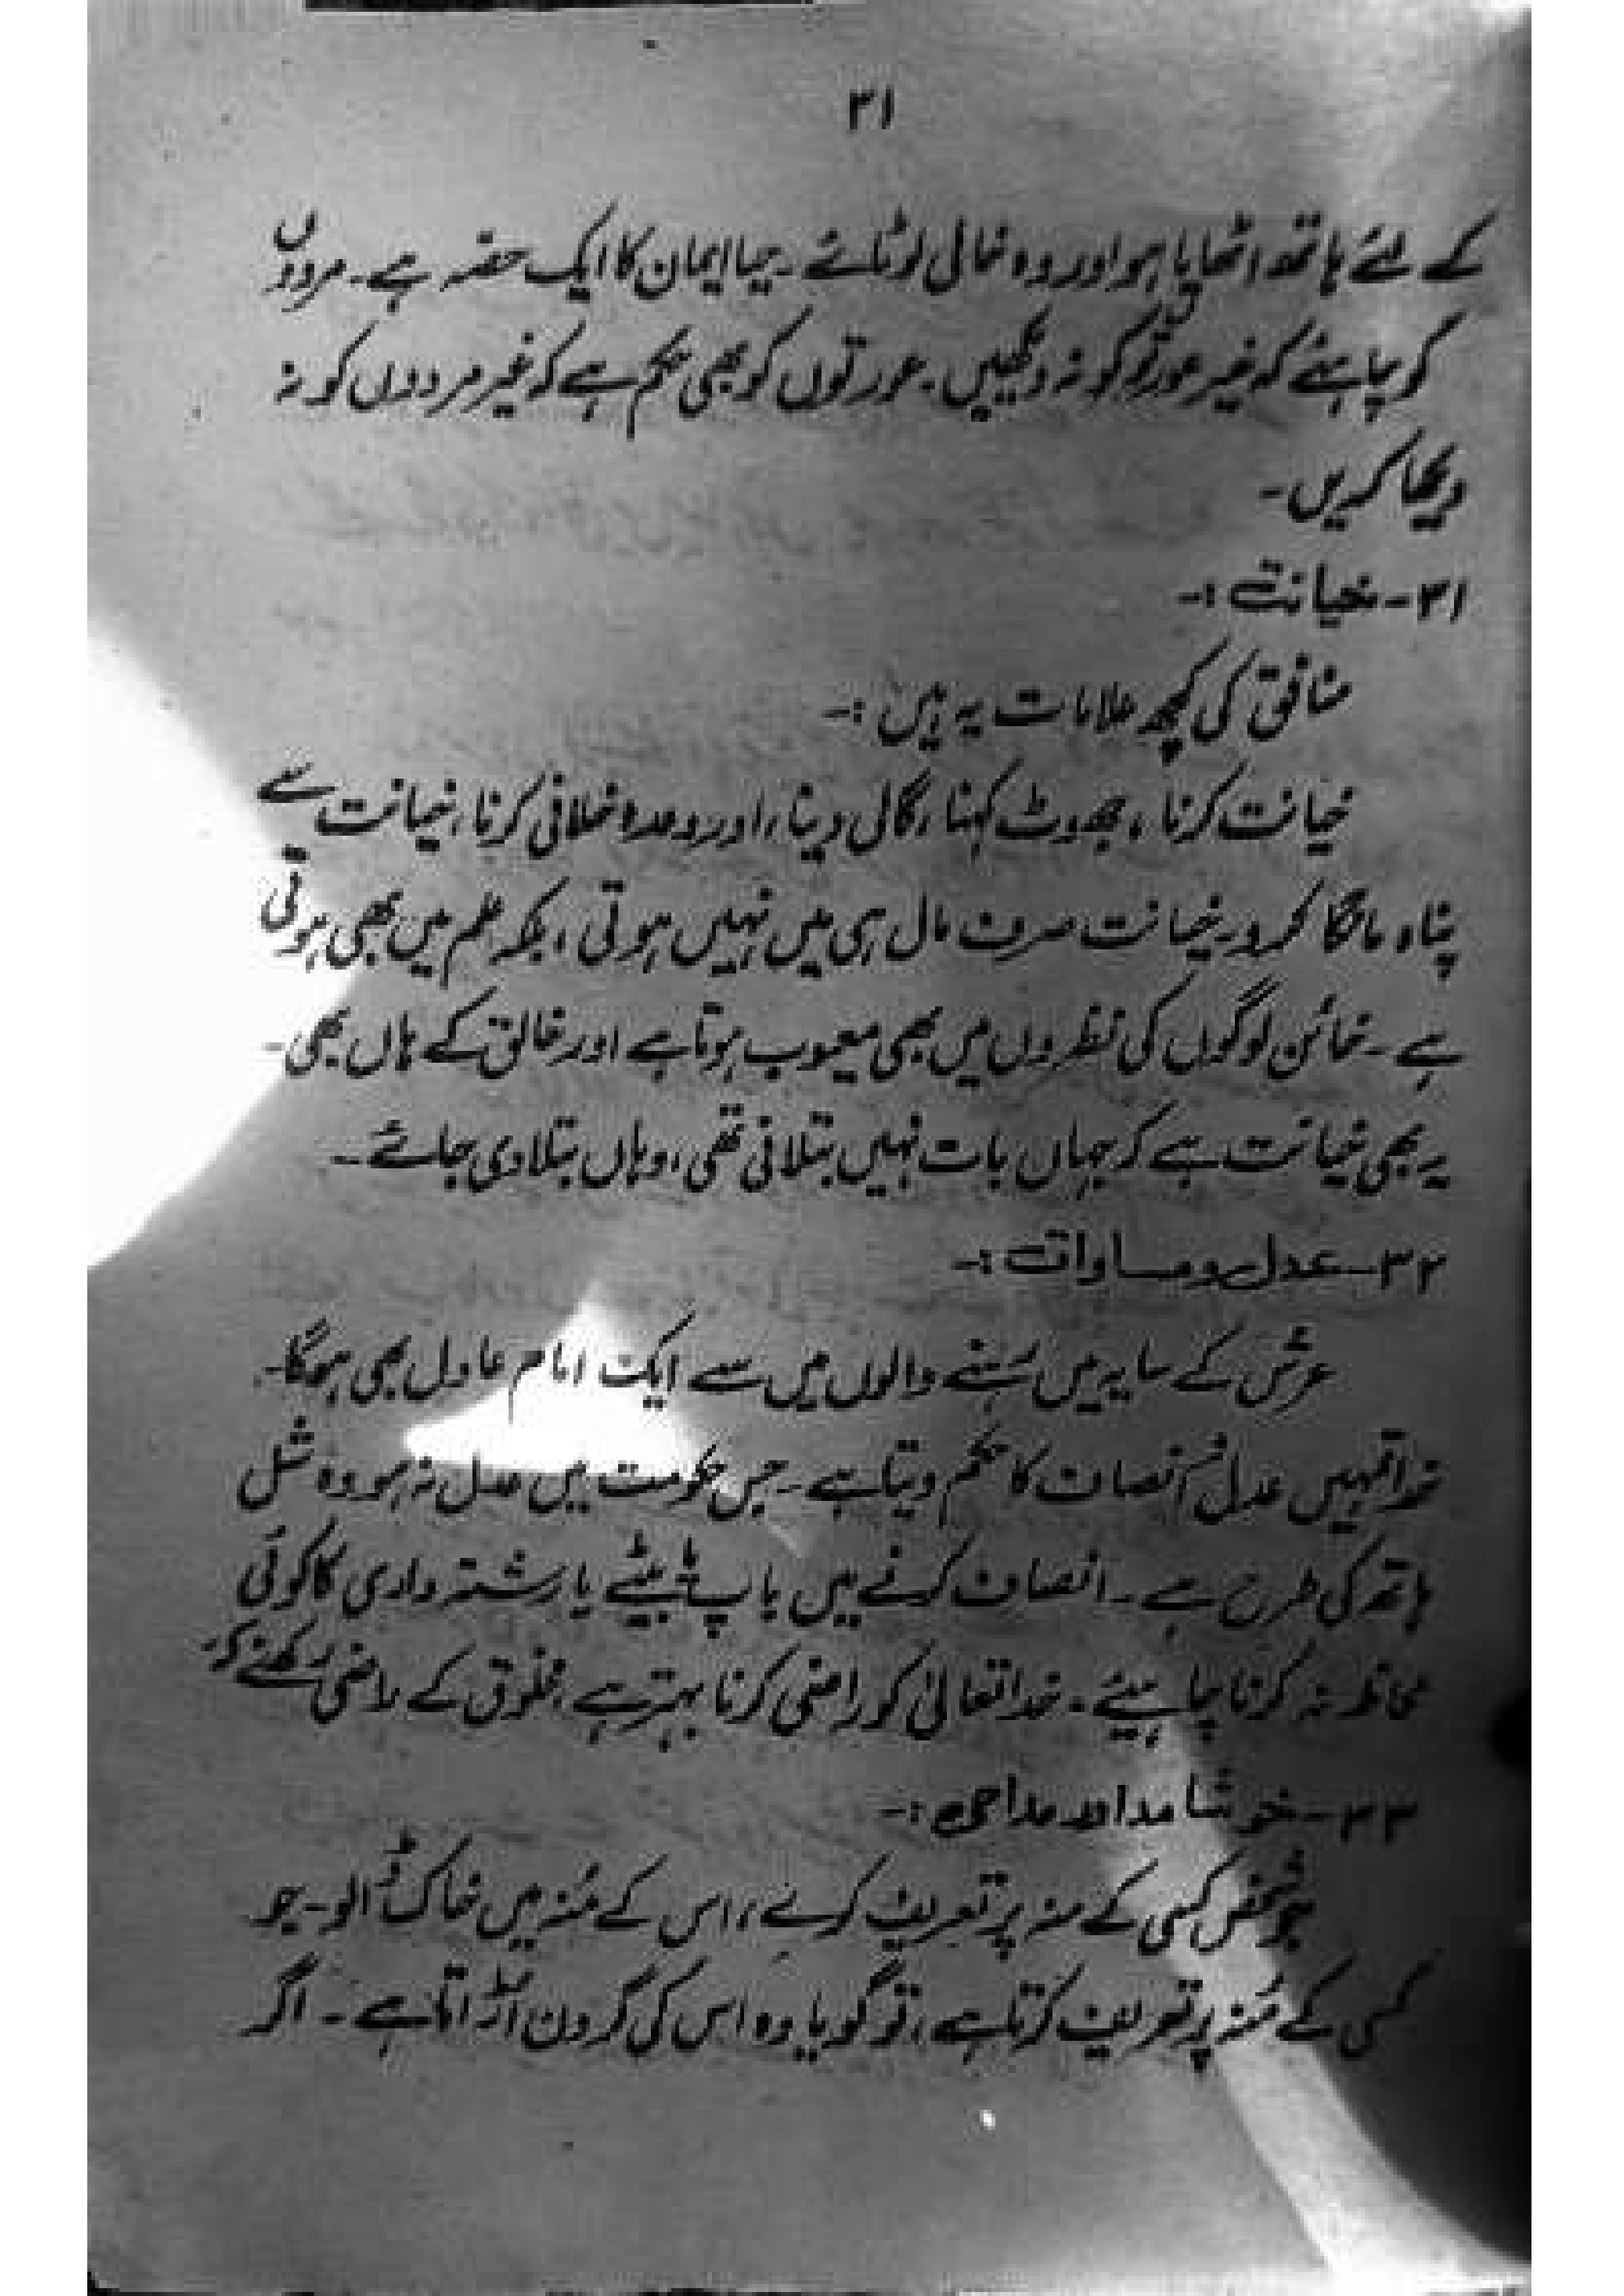 ۳۱
کے لئے ہاتھ اٹھایا ہو اور وہ خالی لوٹائے۔ حیا ایمان کا ایک حصّہ ہے۔ مردوں
کو چاہئے کہ غیر عورتوں کو نہ دیکھیں۔ عورتوں کو بھی حکم ہے کہ غیر مردوں کو نہ
دیکھا کریں۔
۳۱۔ خیانت :۔
منافق کی کچھ علامات یہ ہیں :۔
خیانت کرنا، جھوٹ کہنا، گالی دینا، اور وعدہ خلافی کرنا، خیانت سے
پناہ مانگا کرو۔ خیانت صرف مال ہی میں نہیں ہوتی، بلکہ علم میں بھی ہوتی
ہے۔ خائن لوگوں کی نظروں میں بھی معیوب ہوتا ہے اور خالق کے ہاں بھی۔
یہ بھی خیانت ہے کہ جہاں بات نہیں بتلانی تھی، وہاں بتلا دی جائے۔
۳۲۔ عدل و مساوات :۔
عرش کے سایہ میں رہنے والوں میں سے ایک امام عادل بھی ہوگا۔
خدا تمہیں عدل و انصاف کا حکم دیتا ہے۔ جس حکومت میں عدل نہ ہو وہ شل
ہاتھ کی طرح ہے۔ انصاف کرنے میں باپ بیٹے یا رشتہ داری کا کوئی
لحاظ نہ کرنا چاہیئے۔ خدا تعالیٰ کو راضی کرنا بہتر ہے، مخلوق کے راضی رکھنے
۳۳۔ خوشامد اور مداحی :۔
جو شخص کسی کے منہ پر تعریف کرے، اس کے مُنہ میں خاک ڈالو۔ جو
کسی کے مُنہ پر تعریف کرتا ہے، تو گویا وہ اس کی گردن اڑاتا ہے۔ اگر